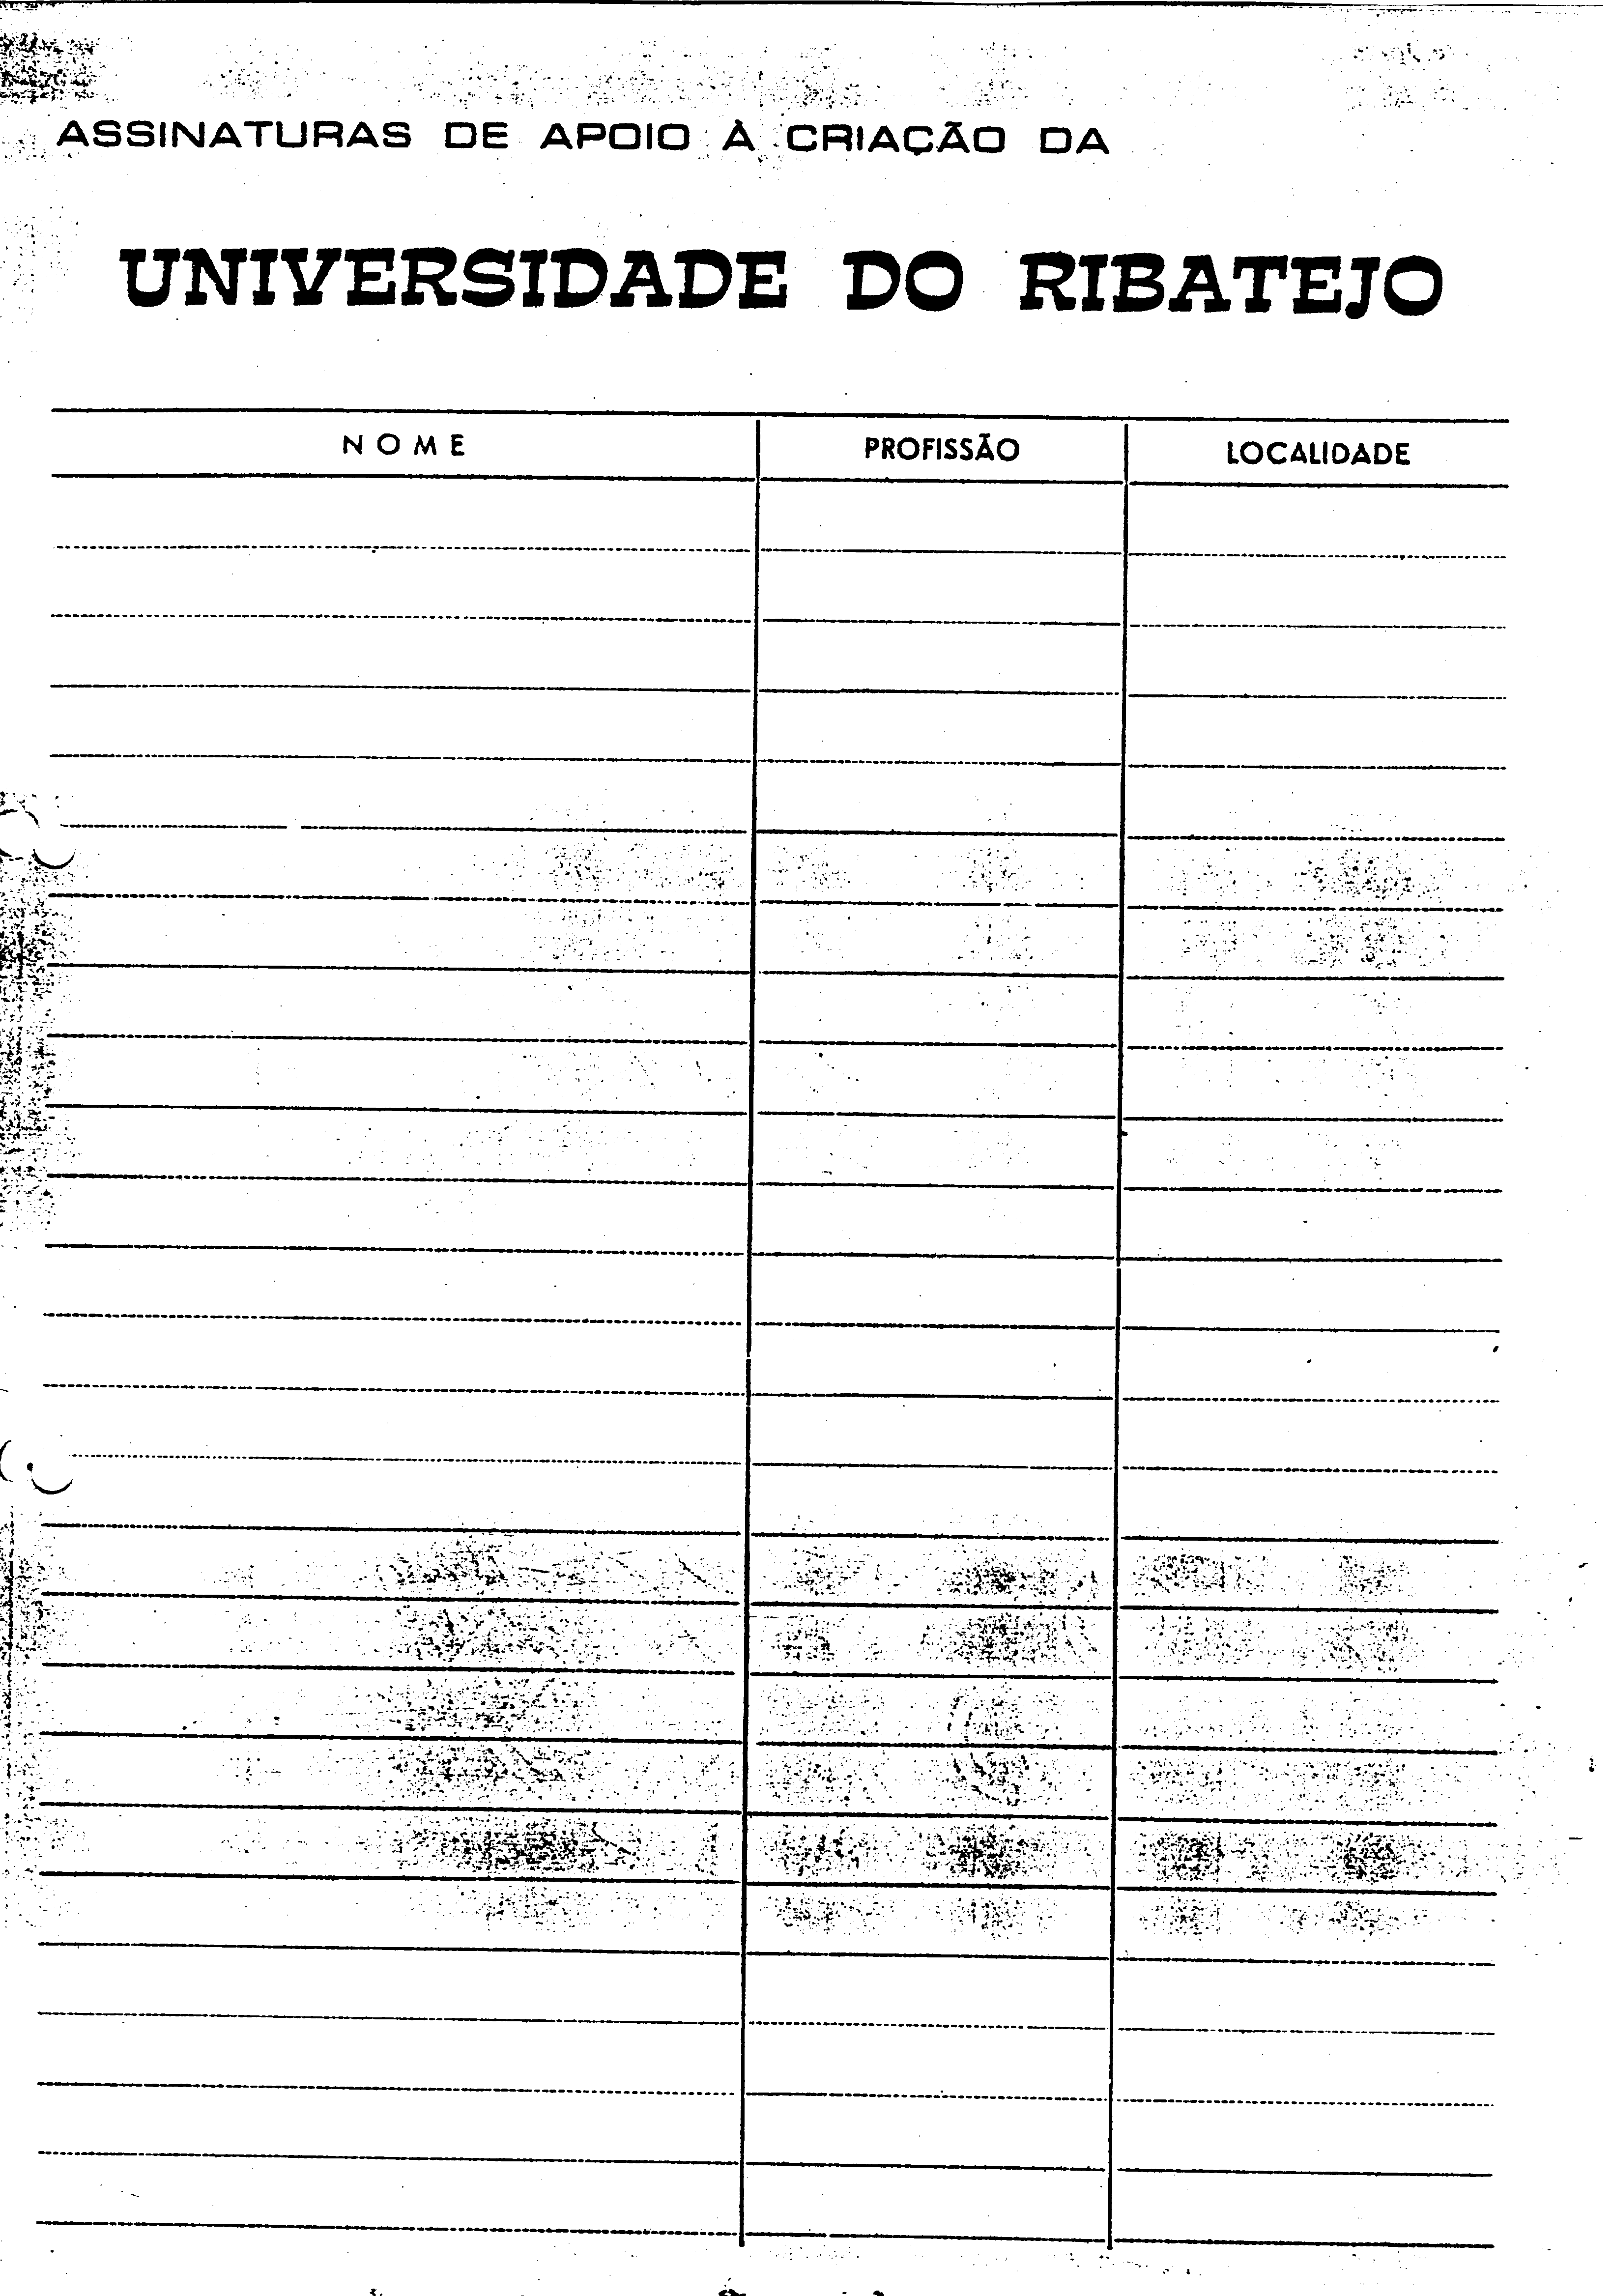 ASSINATURAS DE APOIO À CRIAÇÃO DA
UNIVERSIDADE DO RIBATEJO
NOME PROFISSÃO LOCALIDADE